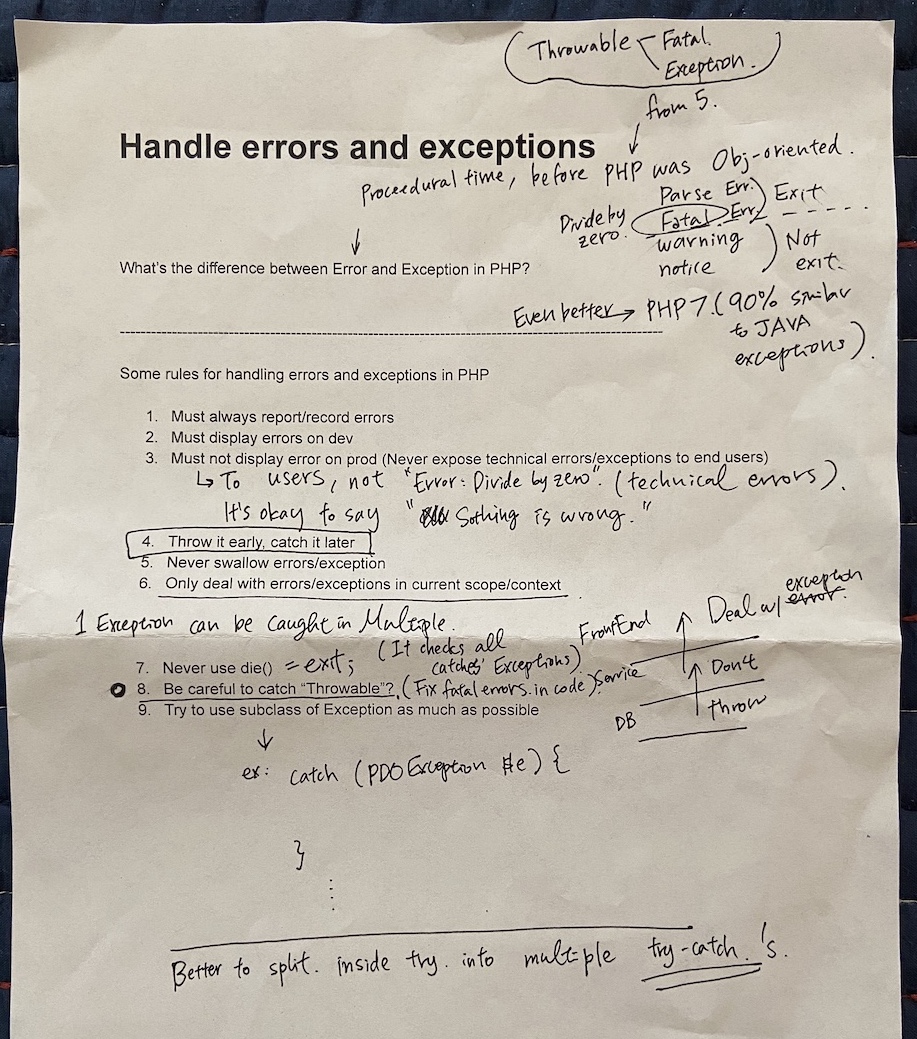 Throwable Fatal.
Exception.
from 5.
Handle errors and exceptions
Proceedural time, before PHP was Obj-oriented.
Divide by zero.
Parse Err.
Fatal Err
Exit
warning
notice
Not exit.
What's the difference between Error and Exception in PHP?
Even better → PHP 7. (90% similar
to JAVA
exceptions).
Some rules for handling errors and exceptions in PHP
1. Must always report/record errors
2. Must display errors on dev
3. Must not display error on prod (Never expose technical errors/exceptions to end users)
↳ To users, not "Error: Divide by zero". (technical errors).
It's okay to say " Sothing is wrong."
4. Throw it early, catch it later
5. Never swallow errors/exception
6. Only deal with errors/exceptions in current scope/context
1 Exception can be caught in Multiple.
(It checks all
catches' Exceptions)
7. Never use die() = exit;
8. Be careful to catch "Throwable"?. (Fix fatal errors. in code).
9. Try to use subclass of Exception as much as possible
FrontEnd
Deal w/ error. exception
Service
Don't
DB
throw
ex: catch (PDOException $e) {
}
Better to split. inside try. into multiple try-catch.'s.